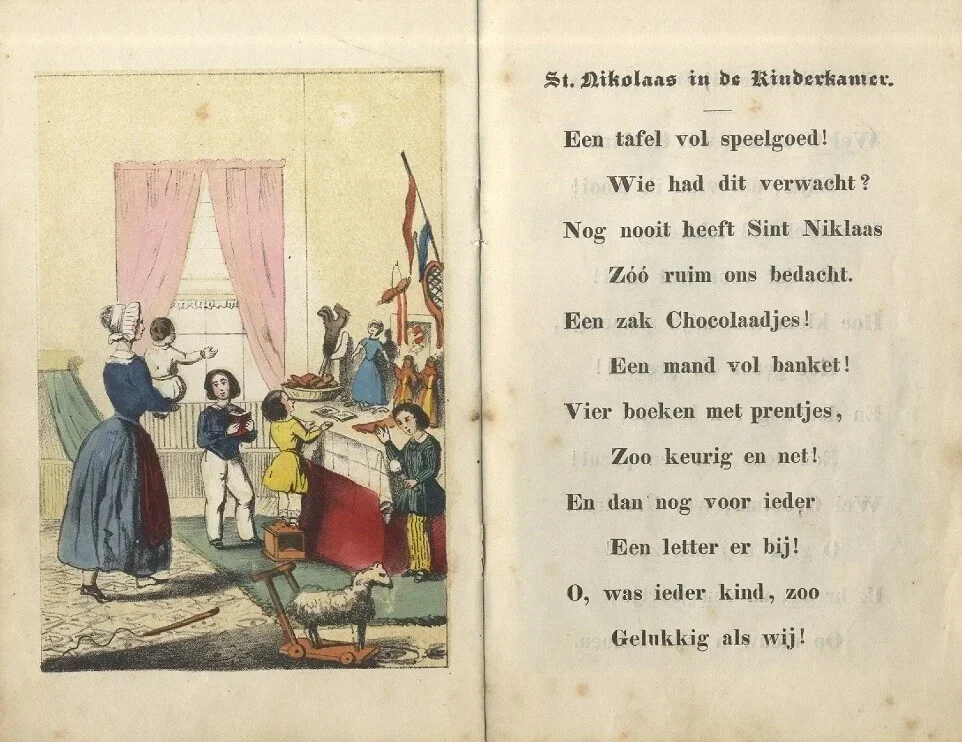 St. Nikolaas in de Kinderkamer.
Een tafel vol speelgoed!
Wie had dit verwacht?
Nog nooit heeft Sint Niklaas
Zóó ruim ons bedacht.
Een zak Chocolaadjes!
Een mand vol banket!
Vier boeken met prentjes,
Zoo keurig en net!
En dan nog voor ieder
Een letter er bij!
O, was ieder kind, zoo
Gelukkig als wij!